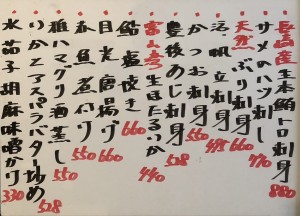 長崎産生本鮪トロ刺身 880
サメのハツ刺し 770
天然ぶり刺身 660
活帆立刺身 495
かつお刺身 550
豊後あじ刺身 528
富山産生ほたるいか 440
鮎塩焼き 660
目光唐揚げ 660
赤魚煮付け 550
ハマグリ酒蒸し 550
いかとアスパラバター炒め 528
水茄子胡麻味噌かけ 330